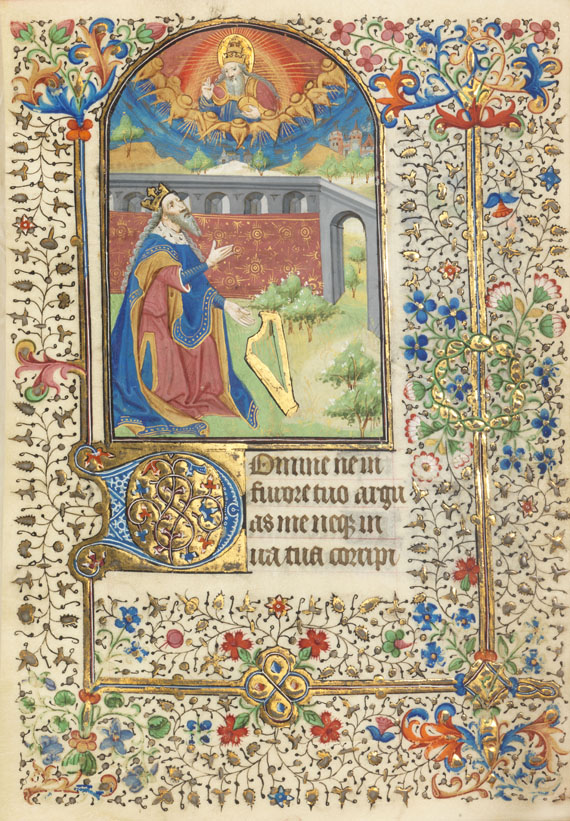 Domine ne in
furore tuo argu
as me neqz in
ira tua corripi